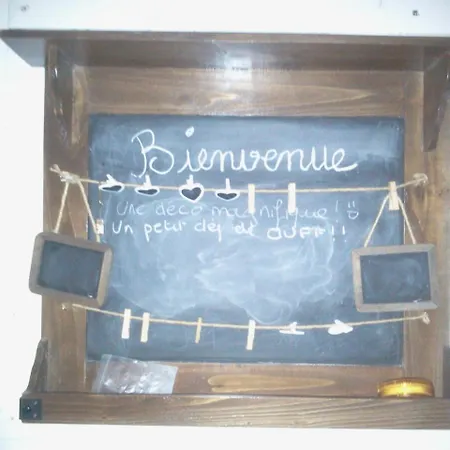 Bienvenue
Une déco magnifique !
Un petit dej de OUFF !!